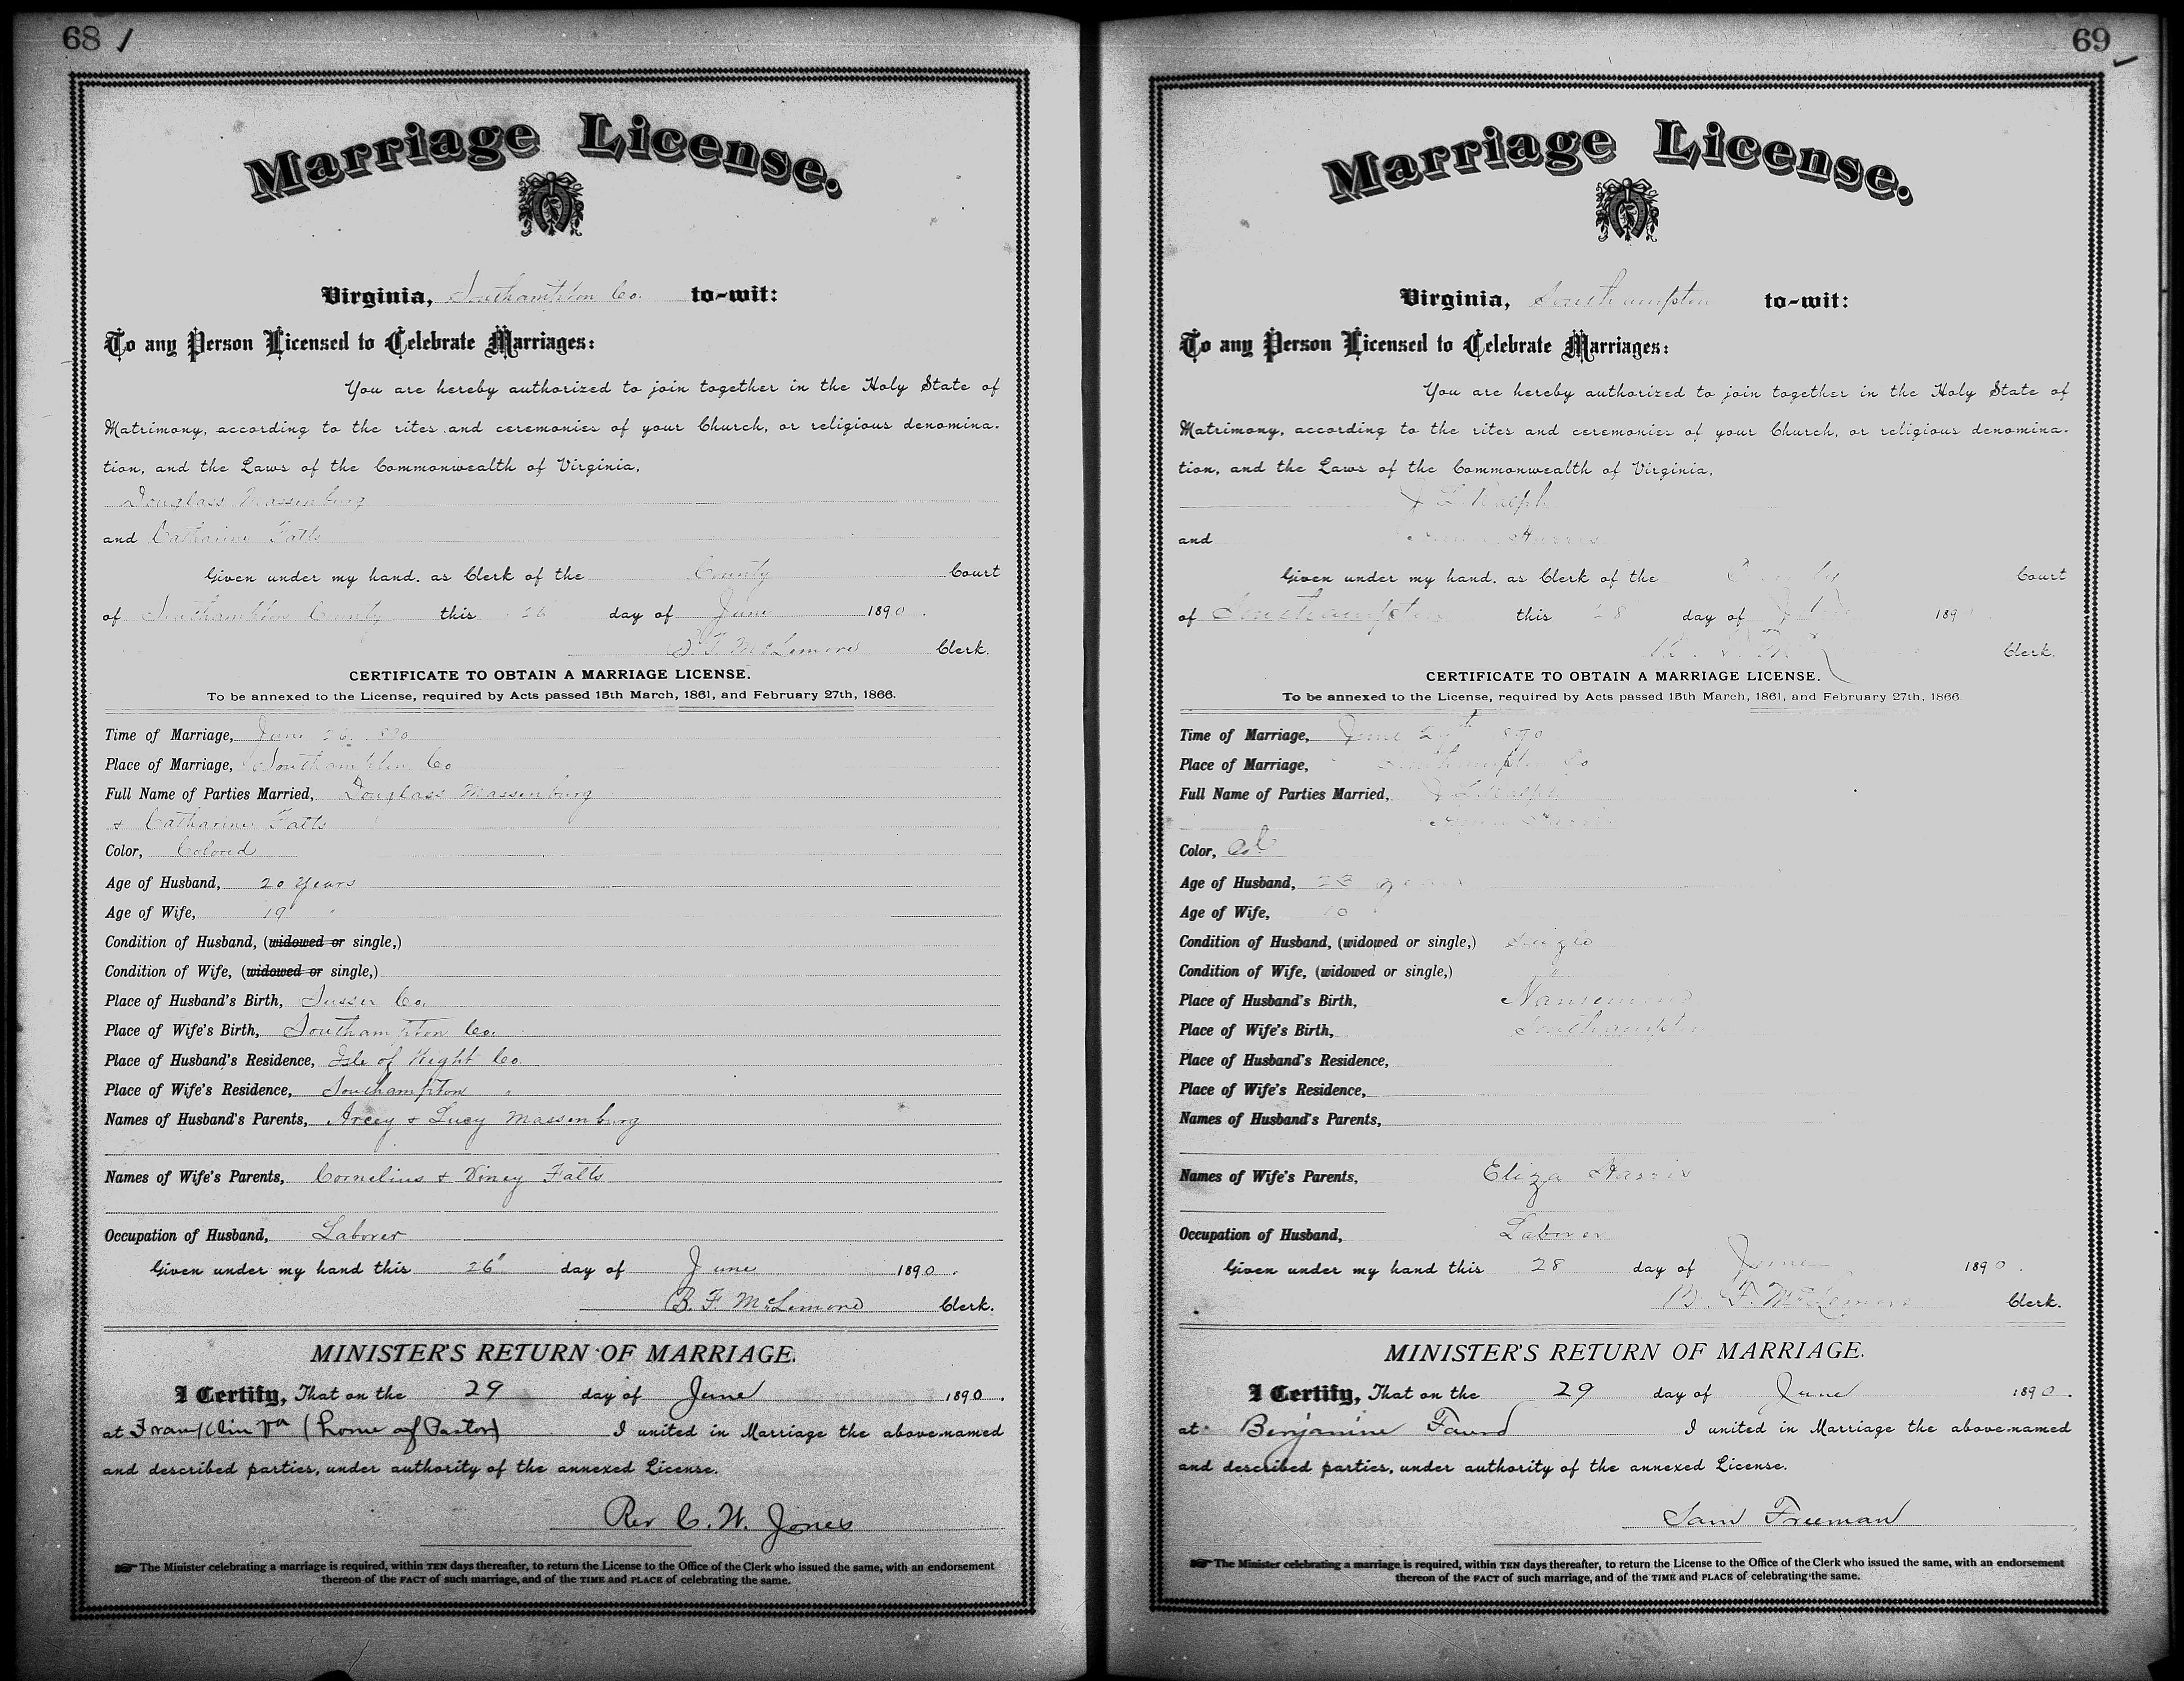 68
Marriage License.
Virginia, Southampton Co. to-wit:
To any Person Licensed to Celebrate Marriages:
You are hereby authorized to join together in the Holy State of
Matrimony, according to the rites and ceremonies of your Church, or religious denomina-
tion, and the Laws of the Commonwealth of Virginia,
Douglass Massenburg
and Catharine Falts
Given under my hand, as Clerk of the County Court
of Southampton County this 26 day of June 1890.
B. F. McLemore Clerk.
CERTIFICATE TO OBTAIN A MARRIAGE LICENSE.
To be annexed to the License, required by Acts passed 15th March, 1861, and February 27th, 1866.
Time of Marriage, June 26, 1890
Place of Marriage, Southampton Co
Full Name of Parties Married, Douglass Massenburg
& Catharine Falts
Color, Colored
Age of Husband, 20 Years
Age of Wife, 19 "
Condition of Husband, (widowed or single,)
Condition of Wife, (widowed or single,)
Place of Husband's Birth, Sussex Co.
Place of Wife's Birth, Southampton Co.
Place of Husband's Residence, Isle of Wight Co.
Place of Wife's Residence, Southampton "
Names of Husband's Parents, Arcey & Lucy Massenburg
Names of Wife's Parents, Cornelius & Viney Falts
Occupation of Husband, Laborer
Given under my hand this 26" day of June 1890.
B. F. McLemore Clerk.
MINISTER'S RETURN OF MARRIAGE.
I Certify, That on the 29 day of June 1890.
at Franklin Va (home of Pastor) I united in Marriage the above-named
and described parties, under authority of the annexed License.
Rev C. W. Jones
The Minister celebrating a marriage is required, within TEN days thereafter, to return the License to the Office of the Clerk who issued the same, with an endorsement
thereon of the FACT of such marriage, and of the TIME and PLACE of celebrating the same.
69
Marriage License.
Virginia, Southampton to-wit:
To any Person Licensed to Celebrate Marriages:
You are hereby authorized to join together in the Holy State of
Matrimony, according to the rites and ceremonies of your Church, or religious denomina-
tion, and the Laws of the Commonwealth of Virginia,
J L Ralph
and Harris
Given under my hand, as Clerk of the County Court
of Southampton this 28 day of June 1890
B. F. Mc Clerk.
CERTIFICATE TO OBTAIN A MARRIAGE LICENSE.
To be annexed to the License, required by Acts passed 15th March, 1861, and February 27th, 1866.
Time of Marriage, June 29th 1890
Place of Marriage, Southampton Co
Full Name of Parties Married, J L Ralph
Color, Col
Age of Husband, 23 years
Age of Wife,
Condition of Husband, (widowed or single,) Single
Condition of Wife, (widowed or single,) "
Place of Husband's Birth, Nansemond
Place of Wife's Birth, Southampton
Place of Husband's Residence,
Place of Wife's Residence,
Names of Husband's Parents,
Names of Wife's Parents, Eliza Harris
Occupation of Husband, Laborer
Given under my hand this 28 day of June 1890.
B. F. McLemore Clerk.
MINISTER'S RETURN OF MARRIAGE.
I Certify, That on the 29 day of June 1890.
at Benjamine I united in Marriage the above-named
and described parties, under authority of the annexed License.
Sam Freeman
The Minister celebrating a marriage is required, within TEN days thereafter, to return the License to the Office of the Clerk who issued the same, with an endorsement
thereon of the FACT of such marriage, and of the TIME and PLACE of celebrating the same.